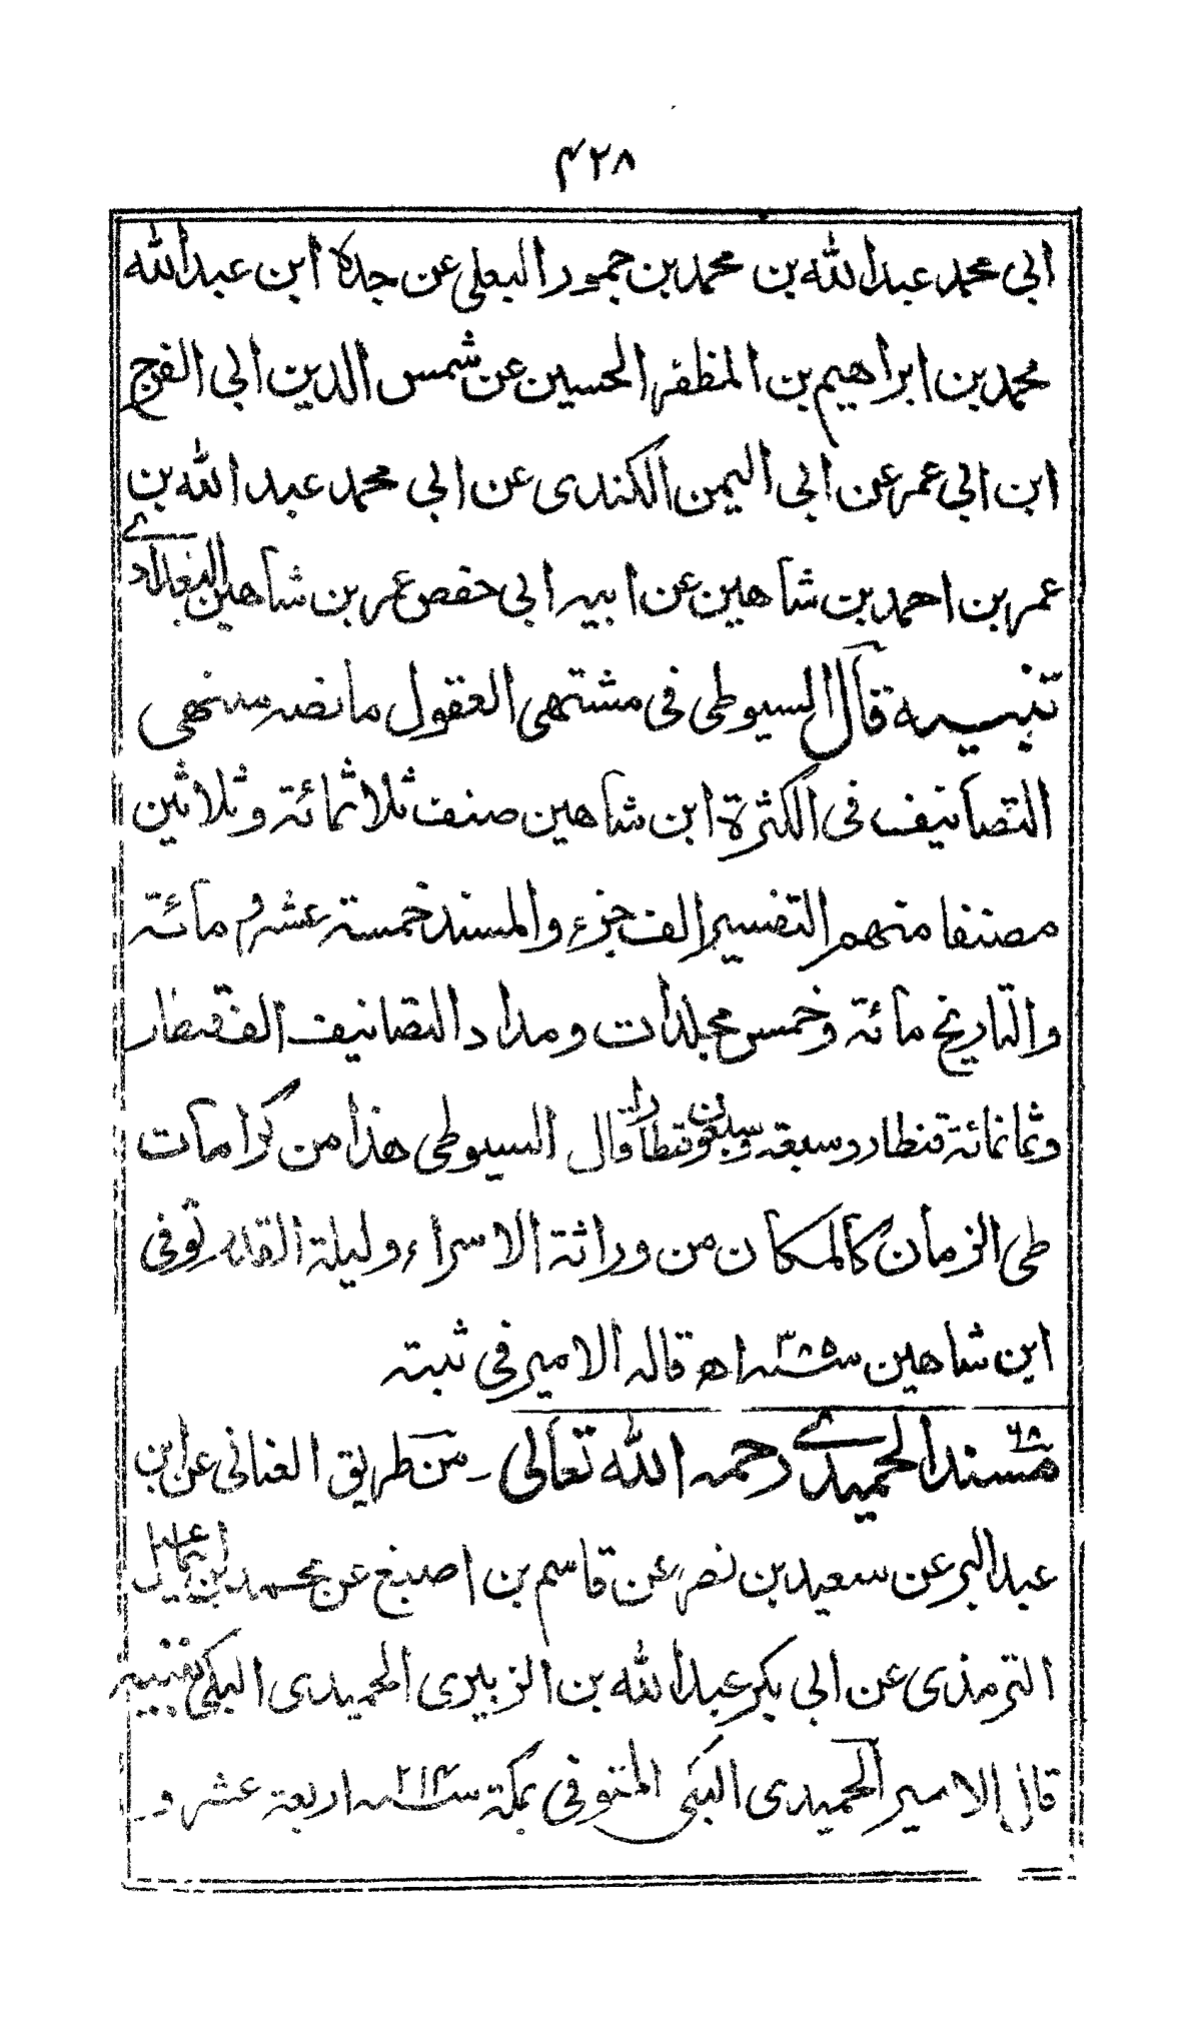 ٤٢٨
ابي محمد عبدالله بن محمد بن جمهور البعلى عن جده ابن عبدالله
محمد بن ابراهيم بن المظفر الحسين عن شمس الدين ابي الفرج
ابن ابي عمر عن ابي اليمن الكندى عن ابي محمد عبد الله بن
عمر بن احمد بن شاهين عن ابيه ابي حفص عمر بن شاهين البغدادے
تنبيه قال السيوطى فى مشتهى العقول ما نصه منتهى
التصانيف فى الكثرة ابن شاهين صنف ثلاثمائة وثلاثين
مصنفا منهم التفسير الف جزء والمسند خمسة عشر مائة
والتاريخ مائة وخمس مجلدات ومداد التصانيف الف قنطار
وثمانمائة قنطار وسبعة وسبعون قنطارا قال السيوطى هذا من كرامات
طى الزمان كالمكان من وراثة الاسراء وليلة القدر توفى
ابن شاهين سنه ٣٨٥ اھ قاله الامير فى ثبته
٦٨ مسند الحميدے رحمه الله تعالى - من طريق العنانى عن ابن
عبد البر عن سعيد بن نصر عن قاسم بن اصبغ عن محمد بن اسماعيل
الترمذى عن ابي بكر عبدالله بن الزبيرى الحميدى المكى تنبيه
قال الامير الحميدى المكى المتوفى بمكة سنه ٢١٤ اربعة عشر و